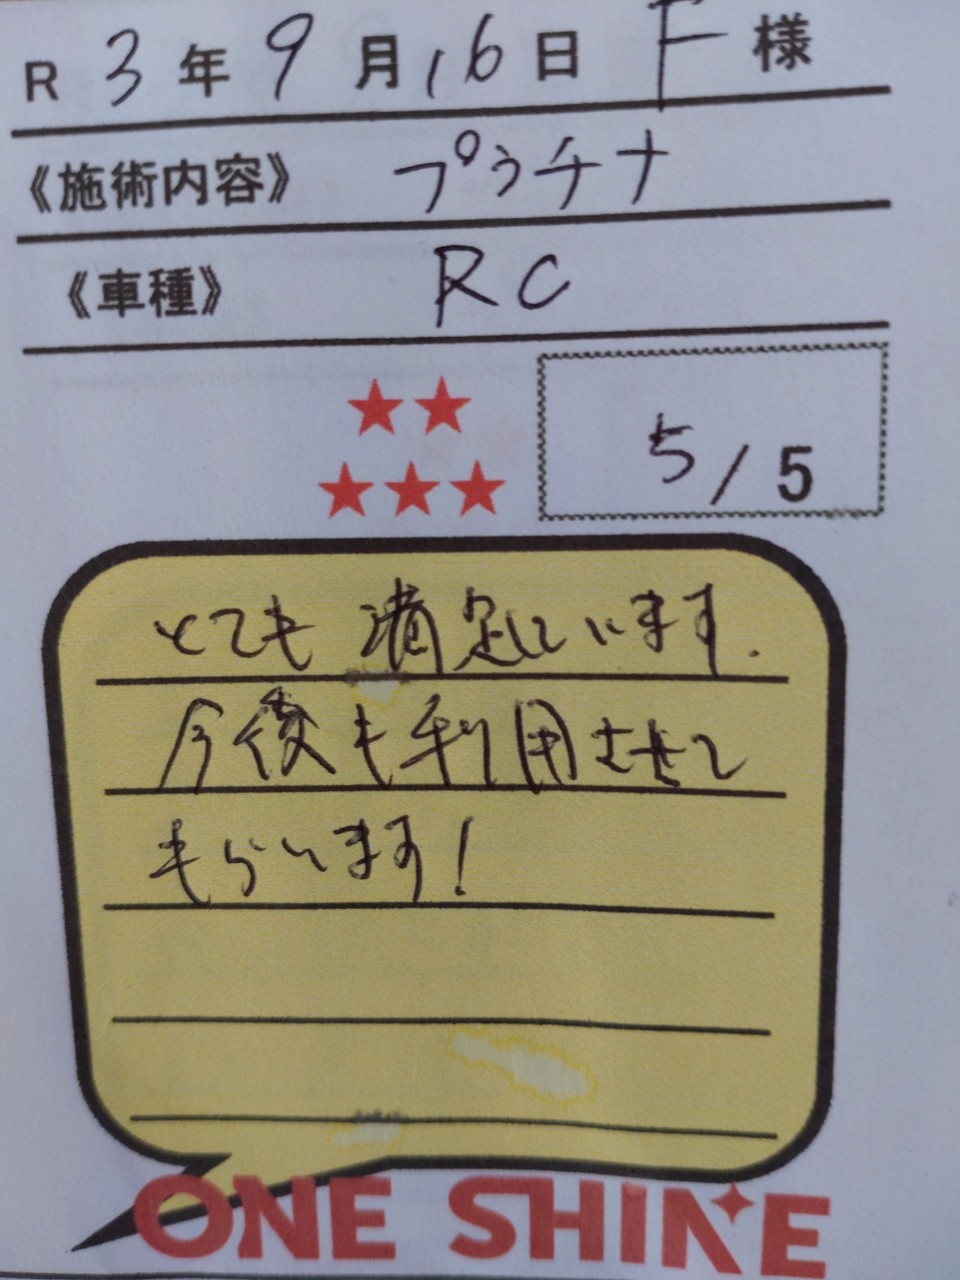 R 3年 9月 16日 F 様
《施術内容》 プラチナ
《車種》 RC
5/5
とても満足しています.
今後も利用させて
もらいます!
ONE SHINE